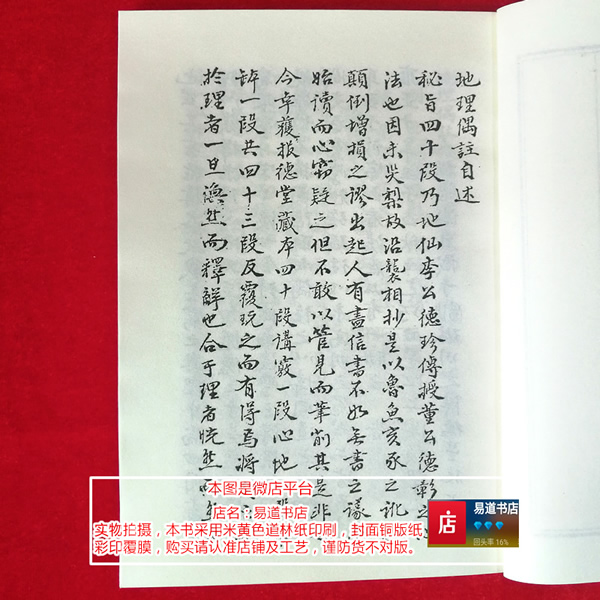 地理偶註自述
秘旨四十段乃地仙李公德珍傳授董公德彰之
法也因未災梨故沿襲相抄是以魯魚亥豕之訛
顛倒增損之謬出起人有盡信書不如無書之議
始讀而心竊疑之但不敢以管見而筆削其是非
今幸獲報德堂藏本四十段講竅一段心地
缺一段共四十三段反覆玩之而有得焉將
於理者一旦渙然而釋解也合于理者恍然
本图是微店平台
店名：易道书店
实物拍摄，本书采用米黄色道林纸印刷，封面铜版纸
彩印覆膜，购买请认准店铺及工艺，谨防货不对版。
店
易道书店
回头率 16%